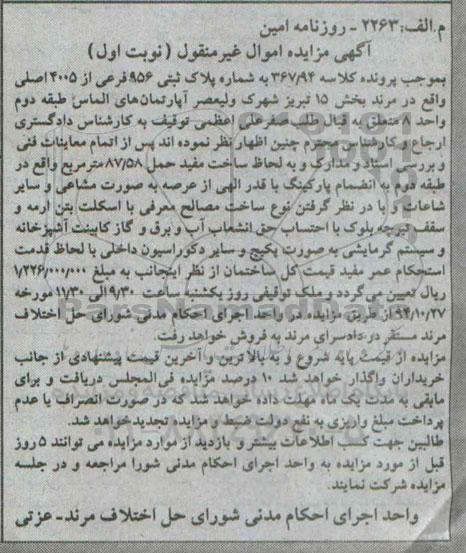 م.الف: ۲۲۶۳ - روزنامه امین
آگهی مزایده اموال غیرمنقول (نوبت اول)
بموجب پرونده کلاسه ۳۶۷/۹۴ به شماره پلاک ثبتی ۹۵۶ فرعی از ۴۰۰۵ اصلی
واقع در مرند بخش ۱۵ تبریز شهرک ولیعصر آپارتمان‌های الماس طبقه دوم
واحد ۸ متعلق به قبال طلب صفرعلی اعظمی توقیف به کارشناس دادگستری
ارجاع و کارشناس محترم چنین اظهار نظر نموده اند پس از اتمام معاینات فنی
و بررسی اسناد و مدارک و به لحاظ ساخت مفید حمل ۸۷/۵۸ مترمربع واقع در
طبقه دوم به انضمام پارکینگ با قدر الهی از عرصه به صورت مشاعی و سایر
شاعات و با در نظر گرفتن نوع ساخت مصالح مصرفی با اسکلت بتن ارمه و
سقف تیرچه بلوک با احتساب حق انشعاب آب و برق و گاز کابینت آشپزخانه
و سیستم گرمایشی به صورت پکیج و سایر دکوراسیون داخلی با لحاظ قدمت
استحکام عمر مفید قیمت کل ساختمان از نظر اینجانب به مبلغ ۱/۲۲۶/۰۰۰/۰۰۰
ریال تعیین می‌گردد و ملک توقیفی روز یکشنبه ساعت ۹/۳۰ الی ۱۱/۳۰ مورخه
۹۴/۱۰/۲۷ از طریق مزایده در واحد اجرای احکام مدنی شورای حل اختلاف
مرند مستقر در دادسرای مرند به فروش خواهد رفت.
مزایده از قیمت پایه شروع و به بالاترین و آخرین قیمت پیشنهادی از جانب
خریداران واگذار خواهد شد ۱۰ درصد مزایده فی‌المجلس دریافت و برای
مابقی به مدت یک ماه مهلت داده خواهد شد که در صورت انصراف یا عدم
پرداخت مبلغ واریزی به نفع دولت ضبط و مزایده تجدید خواهد شد.
طالبین جهت کسب اطلاعات بیشتر و بازدید از موارد مزایده می توانند ۵ روز
قبل از مورد مزایده به واحد اجرای احکام مدنی شورا مراجعه و در جلسه
مزایده شرکت نمایند.
واحد اجرای احکام مدنی شورای حل اختلاف مرند - عزتی